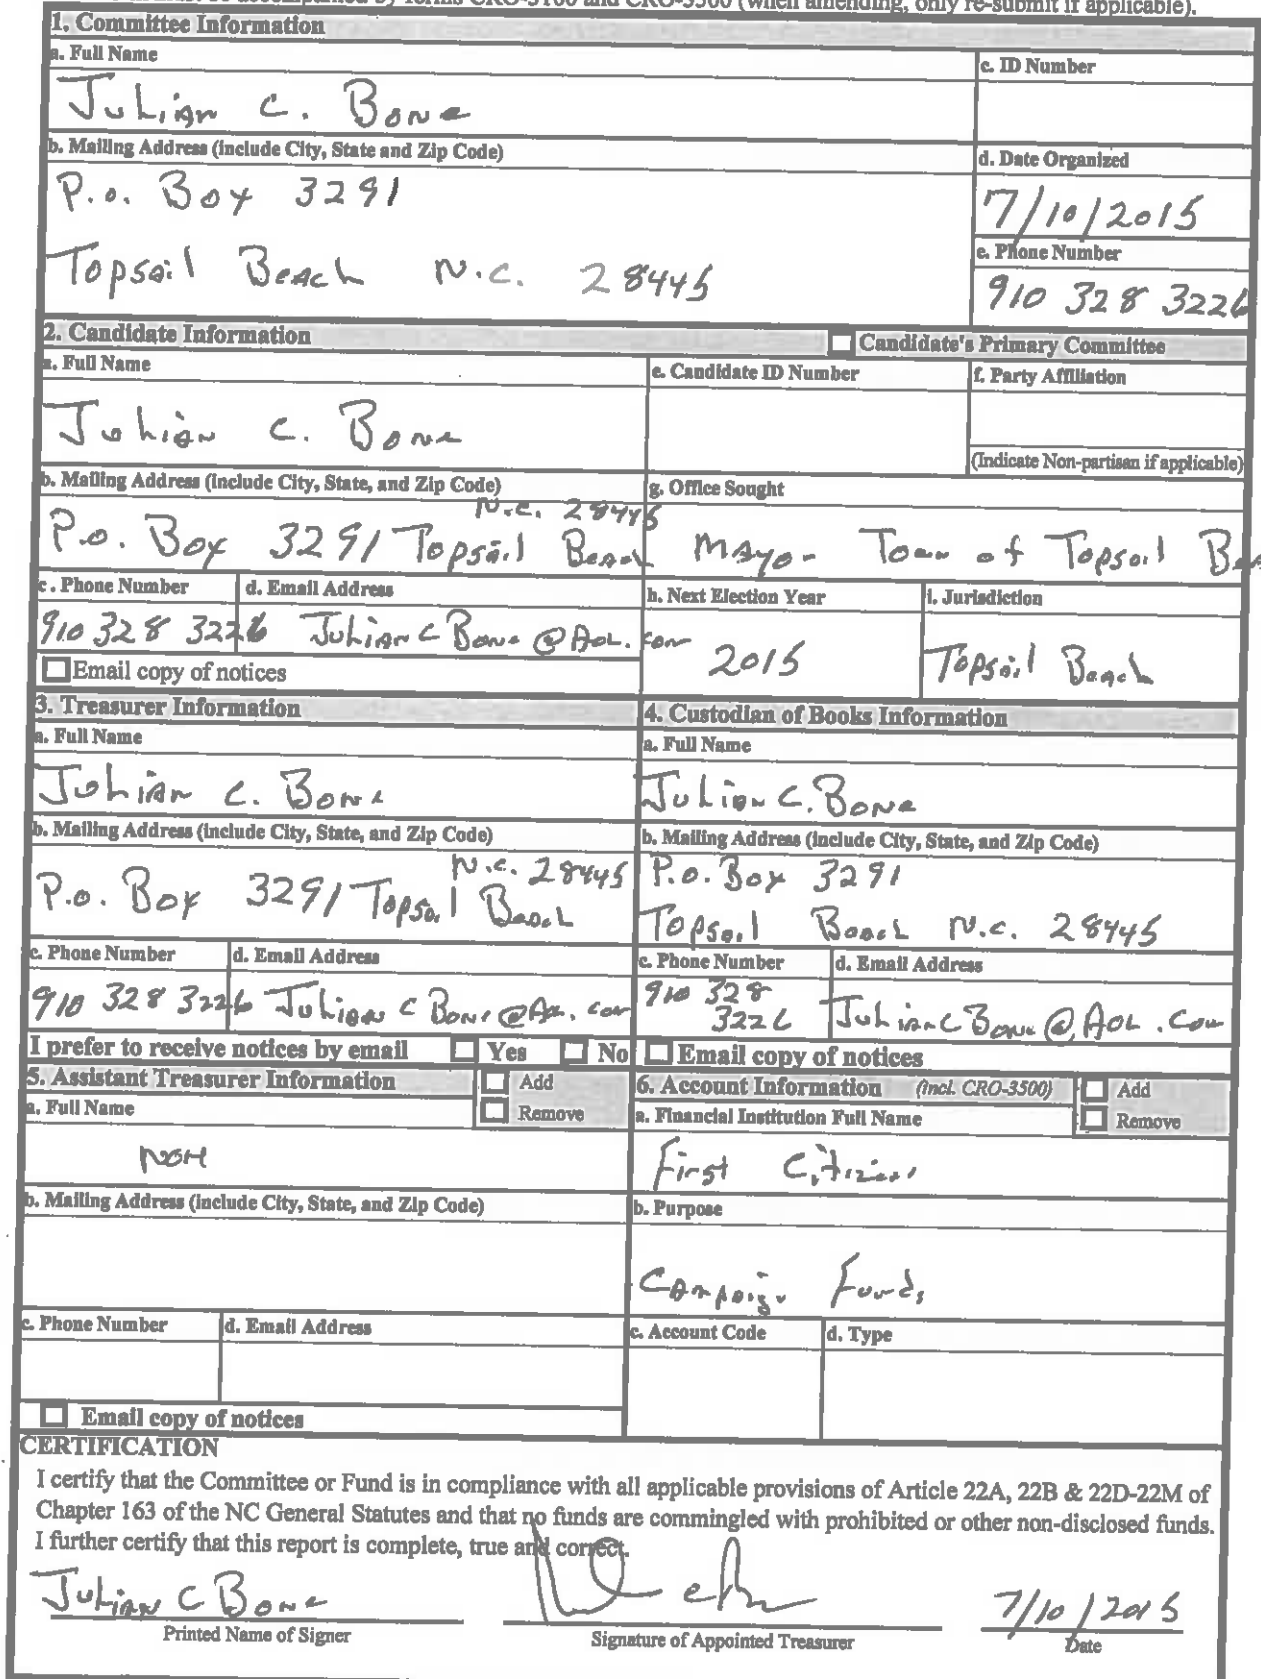 (when amending, only re-submit if applicable).
1. Committee Information
a. Full Name
Julian C. Bone
c. ID Number
b. Mailing Address (include City, State and Zip Code)
P.O. Box 3291
Topsail Beach N.C. 28445
d. Date Organized
7/10/2015
e. Phone Number
910 328 3226
2. Candidate Information
Candidate's Primary Committee
a. Full Name
Julian C. Bone
e. Candidate ID Number
f. Party Affiliation
(Indicate Non-partisan if applicable)
b. Mailing Address (include City, State, and Zip Code)
P.O. Box 3291 Topsail Beach N.C. 28445
g. Office Sought
Mayor Town of Topsail
c. Phone Number
910 328 3226
d. Email Address
JulianCBone@AOL.com
h. Next Election Year
2015
i. Jurisdiction
Topsail Beach
Email copy of notices
3. Treasurer Information
a. Full Name
Julian C. Bone
b. Mailing Address (include City, State, and Zip Code)
P.O. Box 3291 Topsail Beach N.C. 28445
c. Phone Number
910 328 3226
d. Email Address
JulianCBone@AOL.com
I prefer to receive notices by email Yes No
4. Custodian of Books Information
a. Full Name
Julian C. Bone
b. Mailing Address (include City, State, and Zip Code)
P.O. Box 3291
Topsail Beach N.C. 28445
c. Phone Number
910 328
3226
d. Email Address
JulianCBone@AOL.com
Email copy of notices
5. Assistant Treasurer Information
Add
Remove
a. Full Name
b. Mailing Address (include City, State, and Zip Code)
c. Phone Number
d. Email Address
Email copy of notices
6. Account Information (incl. CRO-3500)
Add
Remove
a. Financial Institution Full Name
First Citizens
b. Purpose
Campaign Funds
c. Account Code
d. Type
CERTIFICATION
I certify that the Committee or Fund is in compliance with all applicable provisions of Article 22A, 22B & 22D-22M of
Chapter 163 of the NC General Statutes and that no funds are commingled with prohibited or other non-disclosed funds.
I further certify that this report is complete, true and correct.
Julian C Bone
7/10/2015
Printed Name of Signer
Signature of Appointed Treasurer
Date